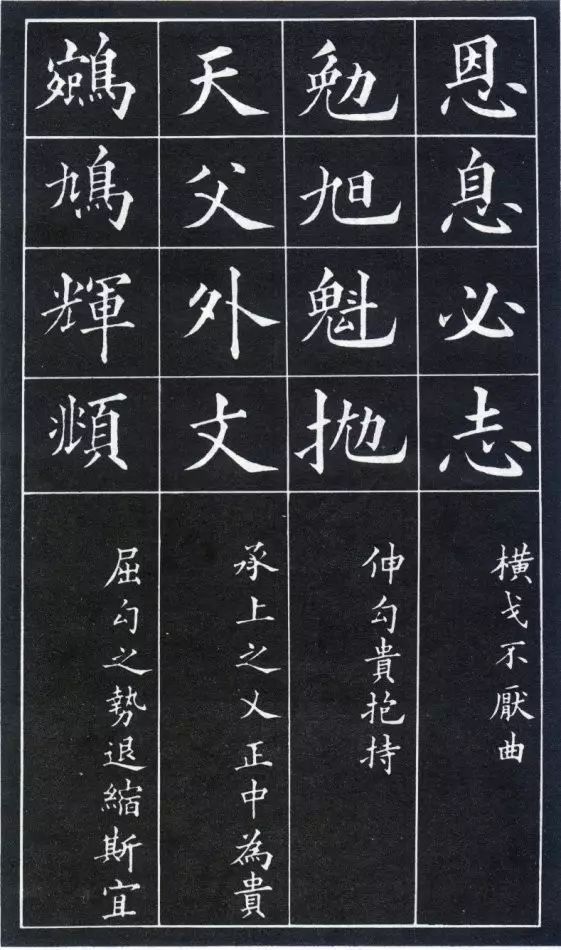 恩息必志
橫戈不厭曲
勉旭魁抛
伸勾貴抱持
天父外丈
承上之乂正中為貴
鵷鳩輝頫
屈勾之勢退縮斯宜